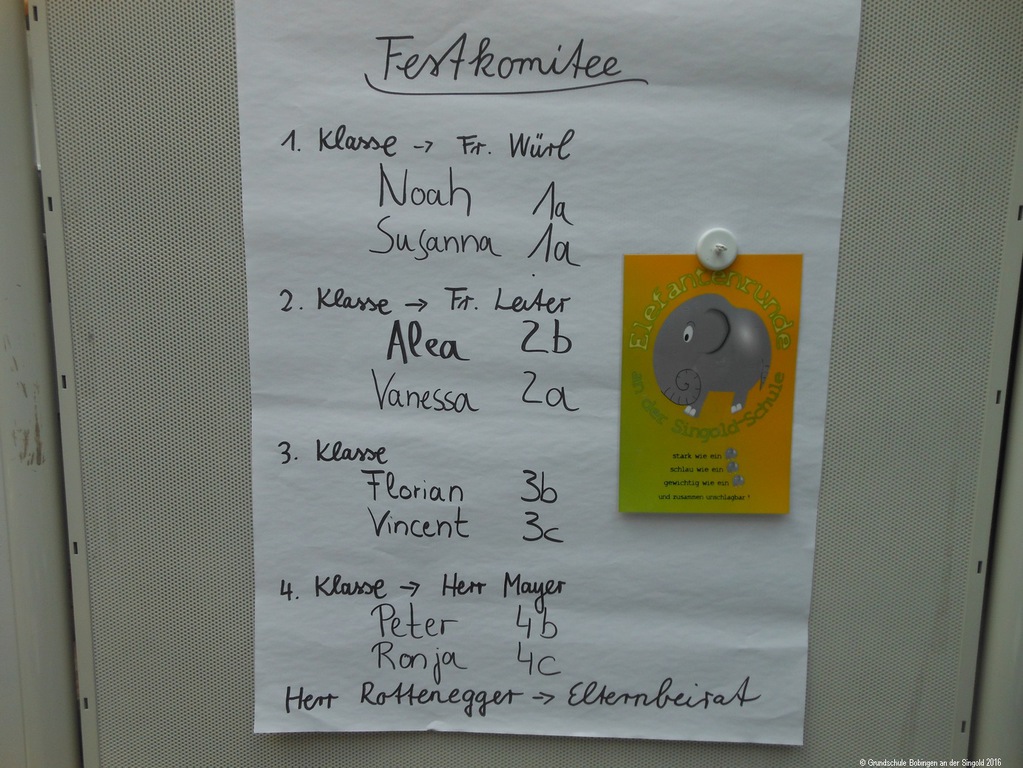 Festkomitee
1. Klasse → Fr. Würl
Noah 1a
Susanna 1a
2. Klasse → Fr. Leiter
Alea 2b
Vanessa 2a
3. Klasse
Florian 3b
Vincent 3c
4. Klasse → Herr Mayer
Peter 4b
Ronja 4c
Herr Rottenegger → Elternbeirat
Elefantenrunde
an der Singold-Schule
stark wie ein
schlau wie ein
gewichtig wie ein
und zusammen unschlagbar !
© Grundschule Bobingen an der Singold 2016